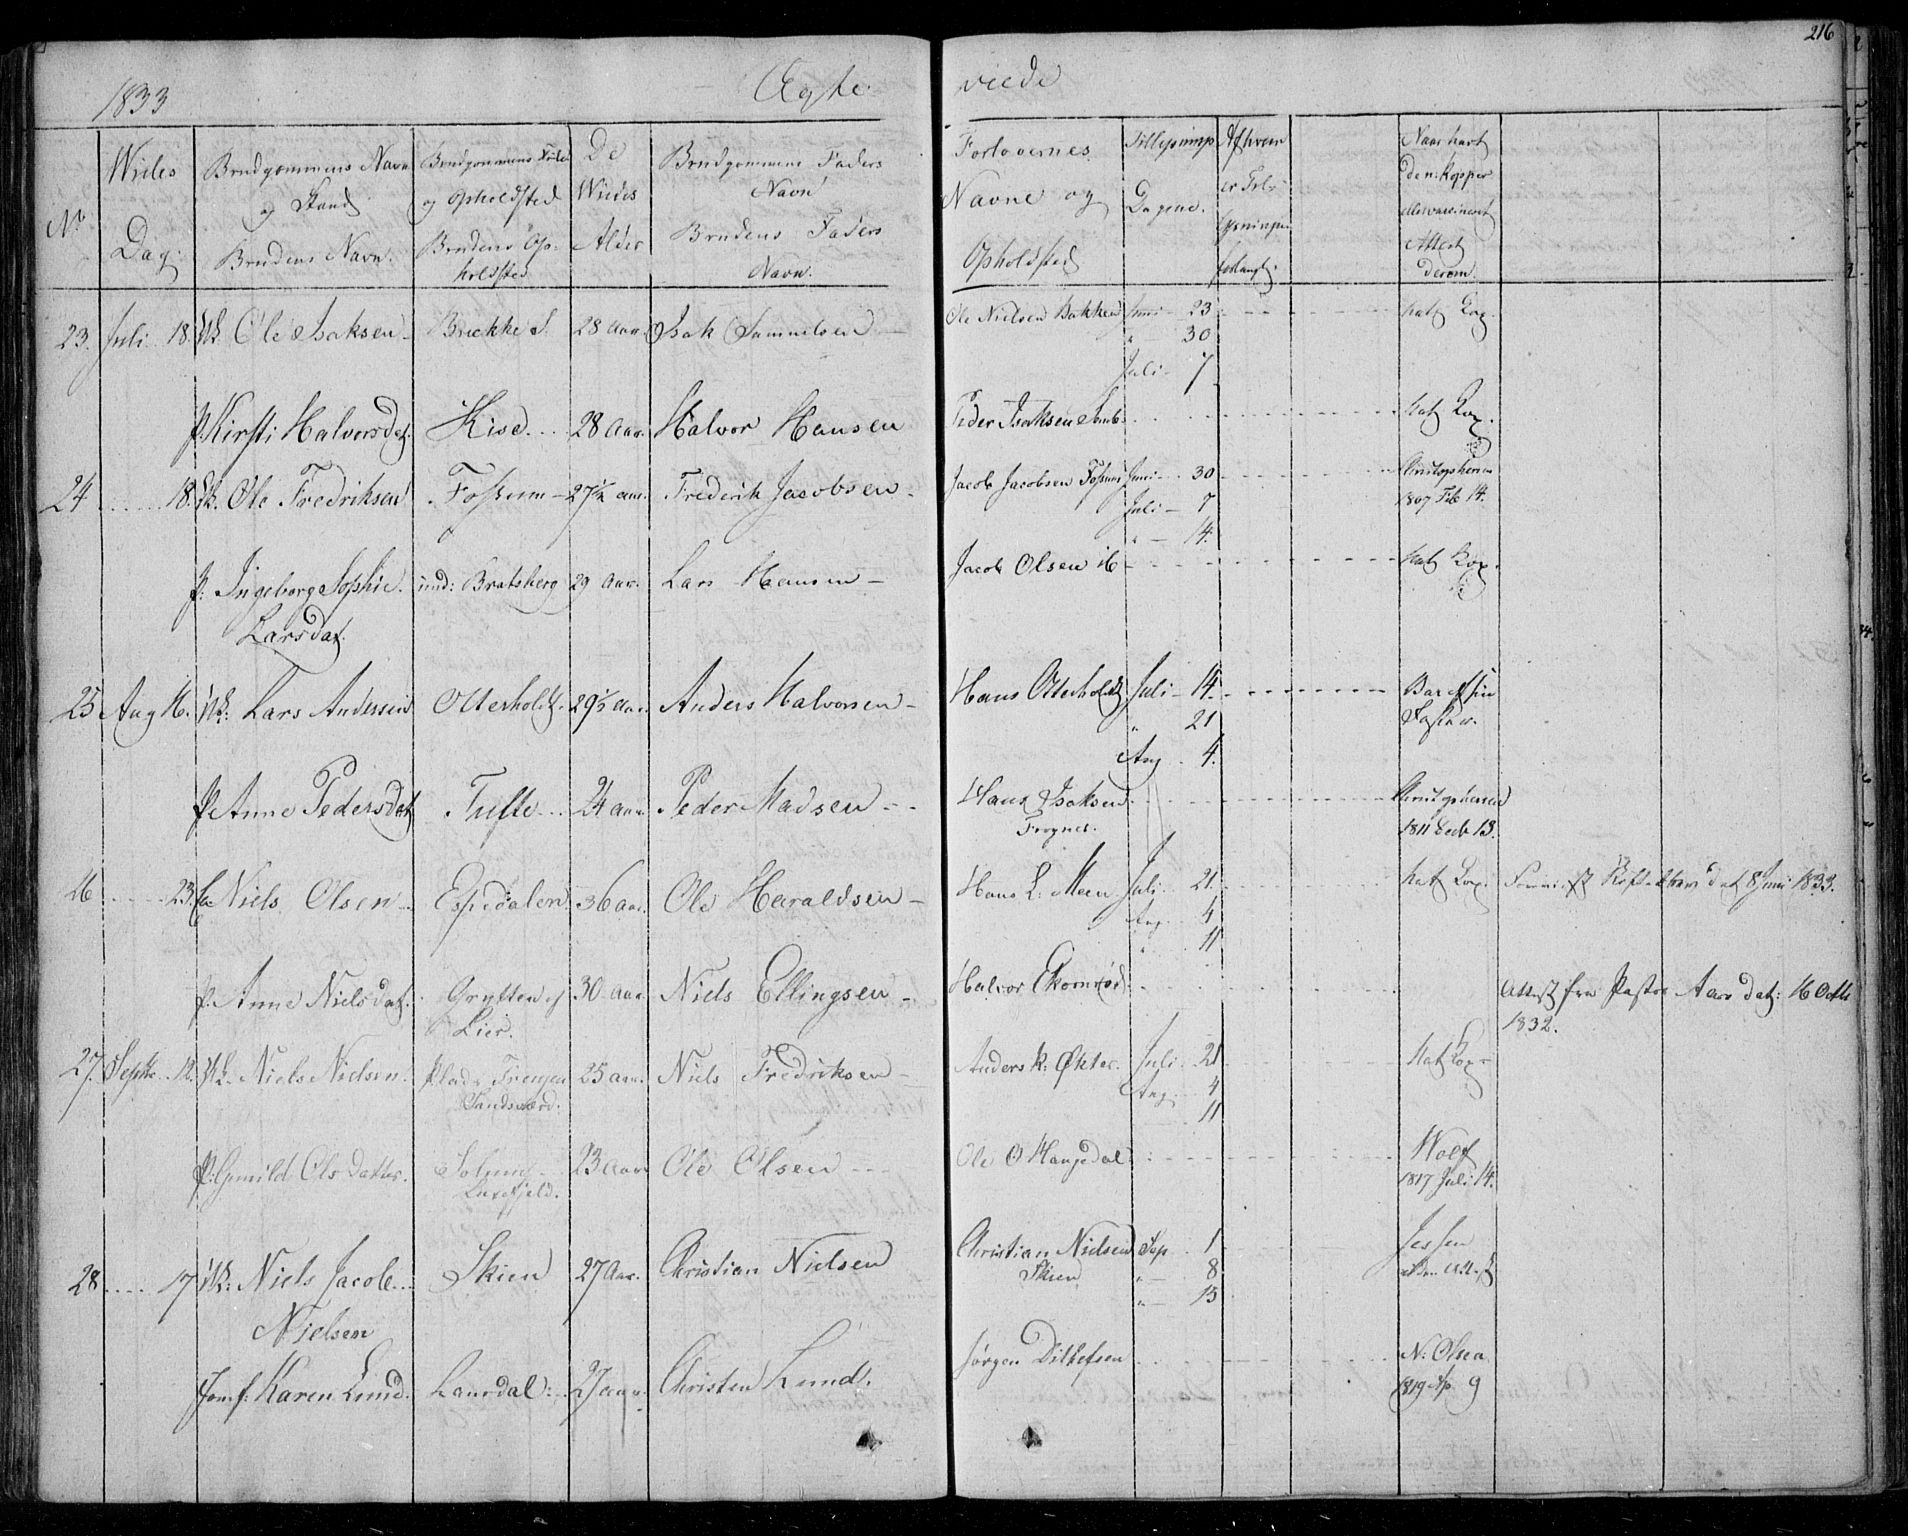 216
1833 Ægte viede
No
Wiedes Dag
Brudgommens Navn og Stand
Brudens Navn.
Brudgommens Føde og Opholdsted
Brudens Opholdsted
De Wiedes Alder
Brudgommens Faders Navn
Brudens Faders Navn.
Forlovernes Navne og Opholdsted
Tillysnings Dagene.
Af hvem er Trolovningen forlangt.
Naar havt de n: Kopper eller vaccineret
Attest derom.
23. Juli 18. Ole Isaksen Brekke S. 28 Aar Isak Samuelsen Ole Nielsen Bakken Juni 23 hat Kop.
" 30
Juli 7
P. Kirsti Halvorsdat. Hise 28 Aar Halvor Hansen Peder Isaksen hat Kop.
24 18. Ole Fredriksen Fossum 27½ Aar Frederik Jacobsen Jacob Jacobsen Fossum Juni 30 Christophersen
1807 Feb 14.
Juli 7
" 14.
p. Ingeborg Sophie Larsdat. und: Bratsberg 29 Aar. Lars Hansen Jacob Olsen ib hat Kop.
25 Aug 16. Lars Andersen Otterholdt 29½ Aar Anders Halvorsen Hans Otterholdt Juli 14.
" 21
Aug 4.
P. Anne Pedersdat Tufte 24 Aar Peder Madsen Hans Isaksen Christophersen
Frogner. 1811 13.
26 23. Niels Olsen Espedalen 36 Aar Ole Haraldsen Hans L: Meen Juli 21. hat Kop. dat 8 Juni 1833.
Aug 4
" 11
p. Anne Nielsdat. Grytten af Lier. 30 Aar Niels Ellingsen Halvor Ekornrød Attest fra Pastor Aars dat: 16 Octb 1832.
27. Septbr. 12. Niels Nielsen Sandsværd. 25 Aar. Niels Fredriksen Anders K: Økter. Juli 21 hat Kop
Aug 4
11
P: Gunild Ols datter. Solum Luxefjeld. 23 Aar Ole Olsen Ole O Haugedal Wolf
1817 Juli 14.
28 17 Niels Jacob Nielsen Skien 27 Aar. Christian Nielsen Christian Nielsen Skien Sep 1 Jessen
" 8
" 15
Jomf: Karen Lund. Laurdal 27 Aar. Christen Lund. Jørgen Ditlefsen N. Olsen
1819 Ap 9